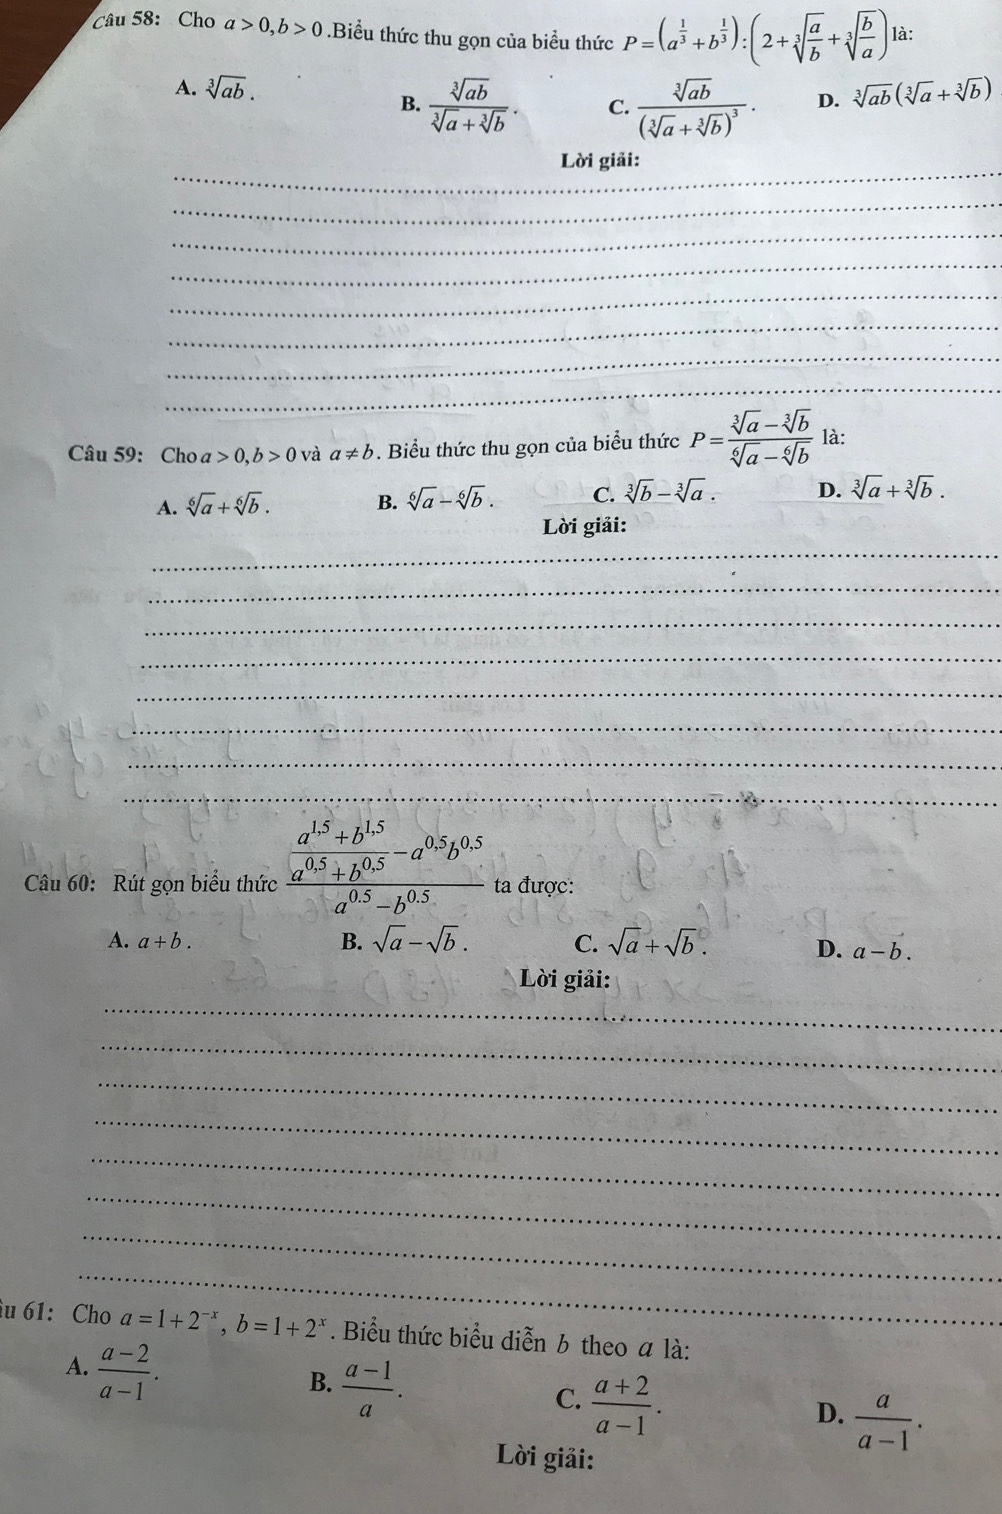 Câu 58: Cho a > 0, b > 0 .Biểu thức thu gọn của biểu thức P = (a^{1/3} + b^{1/3}) : (2 + ∛(a/b) + ∛(b/a)) là:
A. ∛(ab) . B. ∛(ab)/(∛a + ∛b) . C. ∛(ab)/(∛a + ∛b)³ . D. ∛(ab)(∛a + ∛b)
Lời giải:
Câu 59: Cho a > 0, b > 0 và a ≠ b. Biểu thức thu gọn của biểu thức P = (∛a − ∛b)/(⁶√a − ⁶√b) là:
A. ⁶√a + ⁶√b . B. ⁶√a − ⁶√b . C. ∛b − ∛a . D. ∛a + ∛b .
Lời giải:
Câu 60: Rút gọn biểu thức ((a^{1,5} + b^{1,5})/(a^{0,5} + b^{0,5}) − a^{0,5}b^{0,5})/(a^{0.5} − b^{0.5}) ta được:
A. a + b . B. √a − √b . C. √a + √b . D. a − b .
Lời giải:
âu 61: Cho a = 1 + 2^{−x}, b = 1 + 2^x . Biểu thức biểu diễn b theo a là:
A. (a − 2)/(a − 1) . B. (a − 1)/a . C. (a + 2)/(a − 1) . D. a/(a − 1) .
Lời giải: